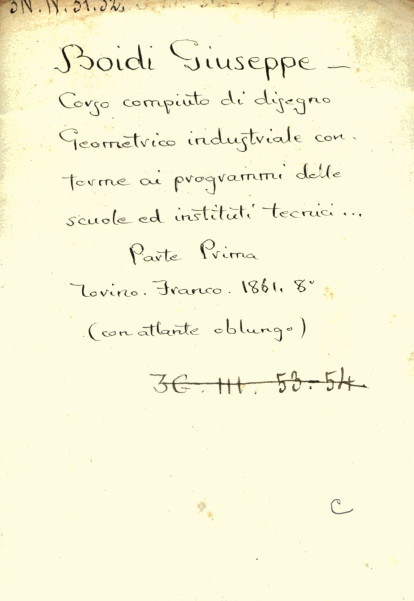 3N. IV. 31.32.
Boidi Giuseppe —
Corso compiuto di disegno
Geometrico industriale con-
forme ai programmi delle
scuole ed instituti tecnici ...
Parte Prima
Torino. Franco. 1861. 8°
(con atlante oblungo)
3G. III. 53-54
C